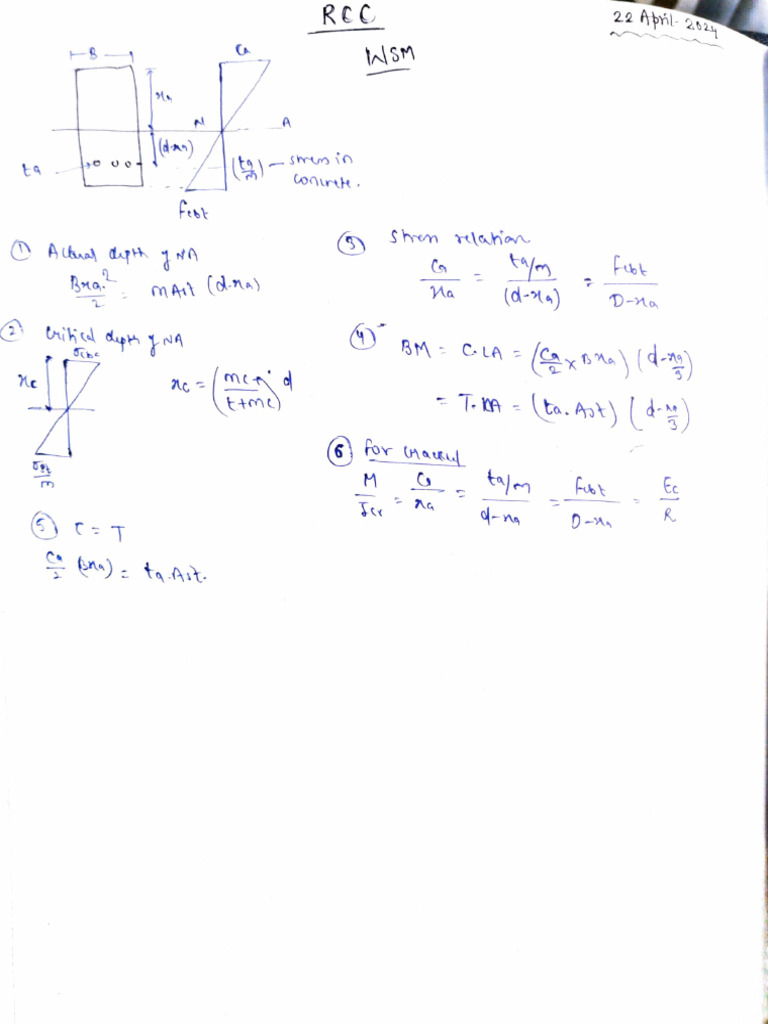 RCC
22 April-2024
WSM
B
Ca
xa
N A
(d-xa)
ta
(ta/m) - stress in
concrete.
Fcbt
① Actual depth of NA
Bxa²/2 = mAst (d-xa)
② Critical depth of NA
σcbc
xc
xc = (mc/(t+mc)) d
σst/m
③ Stress relation
Ca/xa = ta/m/(d-xa) = Fcbt/D-xa
④ BM = C.LA = (Ca/2 × Bxa) (d-xa/3)
= T.LA = (ta.Ast) (d-xa/3)
⑤ C = T
Ca/2 (Bxa) = ta.Ast.
⑥ For cracked
M/Icr = Ca/xa = ta/m/d-xa = Fcbt/D-xa = Ec/R